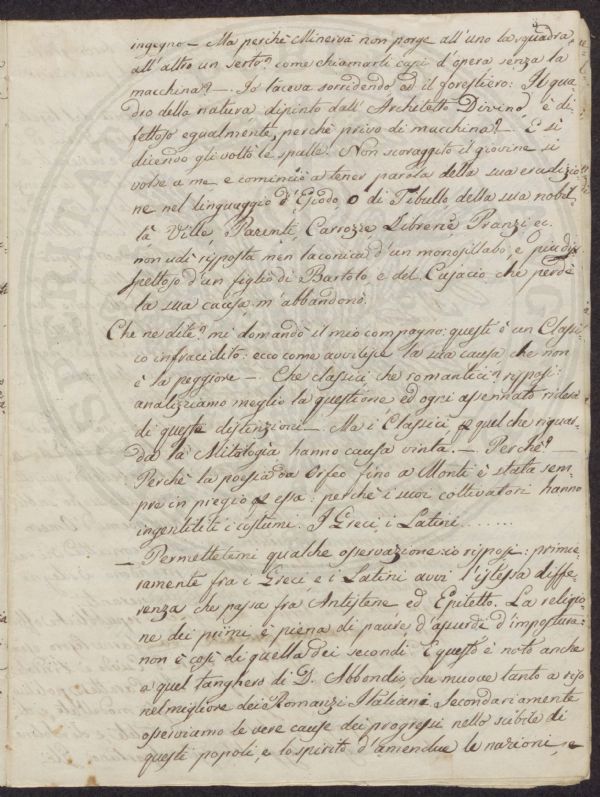 4
ingegno – Ma perchè Minerva non porge all'uno la squadra,
all'altro un serto? come chiamarli capi d'opera senza la
macchina? – Io taceva sorridendo ad il forestiero: Il qua
dro della natura dipinto dall'Architetto Divino è di
fettoso egualmente, perchè privo di macchina? – E sì
dicendo gli voltò le spalle. Non scoraggito il giovine si
volse a me, e cominciò a tener parola della sua erudizio
ne nel linguaggio d'Esiodo, o di Tibullo, della sua nobil
tà Ville, Parenti, Carrozze Librerie Pranzi ec.
non udì risposta men laconica d'un monosillabo, e più di
spettoso d'un figlio di Bartolo e del Cujacio che perdè
la sua causa m'abbandonò.
Che ne dite? mi domandò il mio compagno: questi è un Classi
co infracidito: ecco come avvilisce la sua causa che non
è la peggiore –. Che classici che romantici? risposi:
analizziamo meglio la questione ed ogni assennato riderà
di queste distinzioni –. Ma i Classici per quel che riguar
da la Mitologia hanno causa vinta. –. Perchè? –
Perchè la poesia da Orfeo fino a Monti è stata sem
pre in pregio per essa: perchè i suoi coltivatori hanno
ingentiliti i costumi. I Greci, i Latini ......
– Permettetemi qualche osservazione: io risposi: prime
ramente fra i Greci e i Latini avvi l'istessa diffe
renza che passa fra Antistene ed Epitetto. La religio
ne dei primi è piena di paure, d'assurdi, d'imposture:
non è così di quella dei secondi. E questo è noto anche
a quel tanghero di D. Abbondio, che muove tanto a riso
nel migliore dei Romanzi Italiani. Secondariamente
osserviamo le vere cause dei progressi nello subito di
questi popoli, e lo spirito d'amendue le nazioni, e